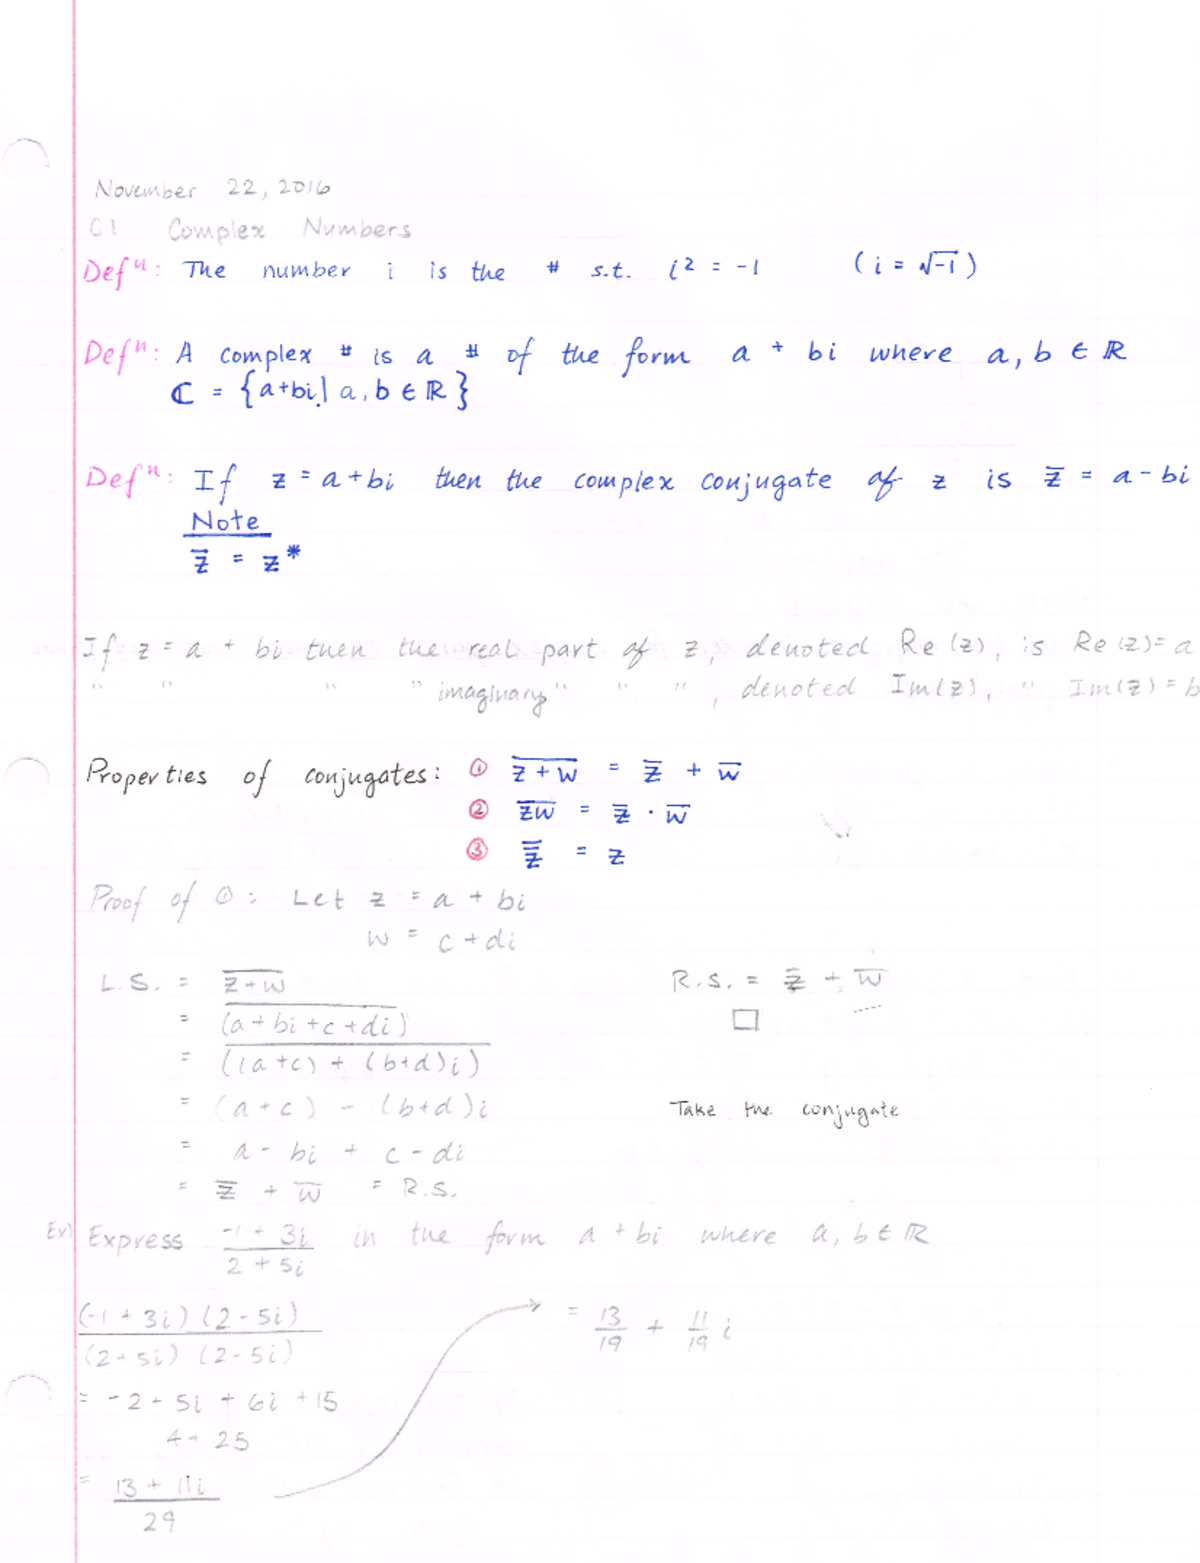 November 22, 2016
C1 Complex Numbers
Defⁿ: The number i is the # s.t. i² = -1 (i = √-1)
Defⁿ: A complex # is a # of the form a + bi where a, b ∈ ℝ
ℂ = {a+bi | a, b ∈ ℝ}
Defⁿ: If z = a+bi then the complex conjugate of z is z̅ = a - bi
Note
z̅ = z*
If z = a + bi then the real part of z, denoted Re(z), is Re(z) = a
" " " " imaginary " " ", denoted Im(z), " Im(z) = b
Properties of conjugates: ① \overline{z + w} = z̅ + w̅
② \overline{zw} = z̅ · w̅
③ \overline{z̅} = z
Proof of ①: Let z = a + bi
w = c + di
L.S. = \overline{z+w} R.S. = z̅ + w̅
= \overline{(a + bi + c + di)} □
= \overline{((a+c) + (b+d)i)}
= (a+c) - (b+d)i Take the conjugate
= a - bi + c - di
= z̅ + w̅ = R.S.
Ex) Express -1 + 3i in the form a + bi where a, b ∈ ℝ
2 + 5i
(-1 + 3i) (2 - 5i) = 13/19 + 11/19 i
(2 + 5i) (2 - 5i)
= -2 + 5i + 6i + 15
4 + 25
= 13 + 11i
29